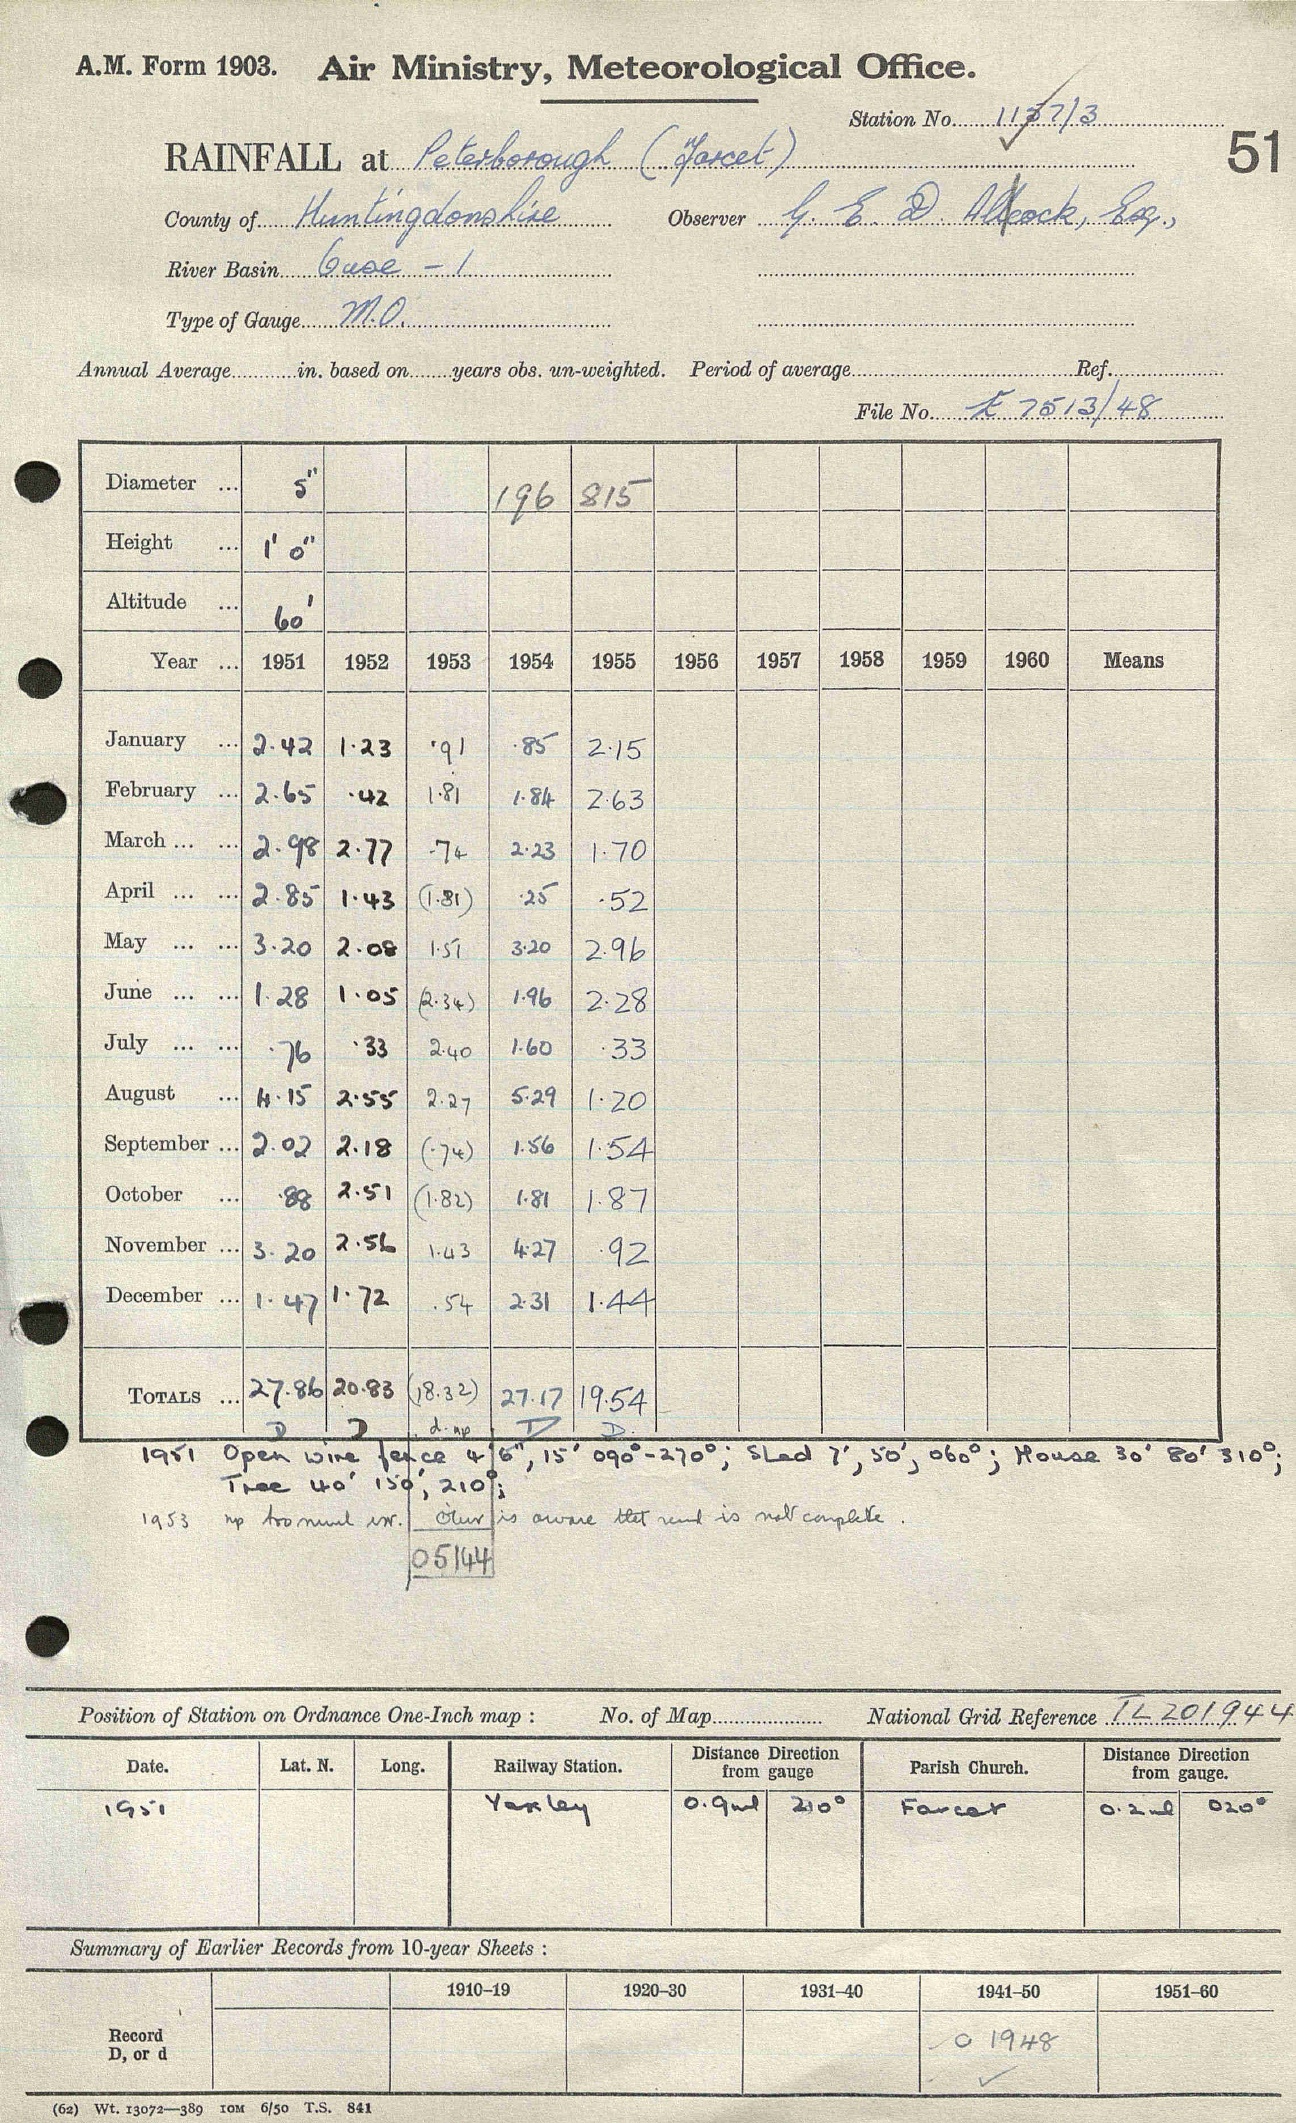 A.M. Form 1903. Air Ministry, Meteorological Office.
Station No. 1137/3
51
RAINFALL at Peterborough (Farcet)
County of Huntingdonshire Observer G. E. D. Alcock, Esq.,
River Basin Ouse - 1
Type of Gauge M.O.
Annual Average in. based on years obs. un-weighted. Period of average Ref.
File No. E 7513/48
Diameter ... 5" 196 815
Height ... 1' 0"
Altitude ... 60'
Year ... 1951 1952 1953 1954 1955 1956 1957 1958 1959 1960 Means
January ... 2.42 1.23 .91 .85 2.15
February ... 2.65 .42 1.81 1.84 2.63
March ... ... 2.98 2.77 .74 2.23 1.70
April ... ... 2.85 1.43 (1.81) .25 .52
May ... ... 3.20 2.08 1.51 3.20 2.96
June ... ... 1.28 1.05 (2.34) 1.96 2.28
July ... ... .76 .33 2.40 1.60 .33
August ... 4.15 2.55 2.27 5.29 1.20
September ... 2.02 2.18 (.74) 1.56 1.54
October ... .88 2.51 (1.82) 1.81 1.87
November ... 3.20 2.56 1.43 4.27 .92
December ... 1.47 1.72 .54 2.31 1.44
TOTALS ... 27.86 20.83 (18.32) 27.17 19.54
D D d. np D D.
1951 Open wire fence 4'6", 15' 090°-270°; Shed 7', 50', 060°; House 30' 80' 310°;
Tree 40' 150', 210°;
1953 np too much Obsr is aware that is not complete.
05144
Position of Station on Ordnance One-Inch map : No. of Map National Grid Reference TL 201944
Date. Lat. N. Long. Railway Station. Distance Direction from gauge Parish Church. Distance Direction from gauge.
1951 Yaxley 0.9ml 210° Farcet 0.2ml 020°
Summary of Earlier Records from 10-year Sheets :
1910-19 1920-30 1931-40 1941-50 1951-60
Record
D, or d 0 1948
(62) Wt. 13072—389 10M 6/50 T.S. 841